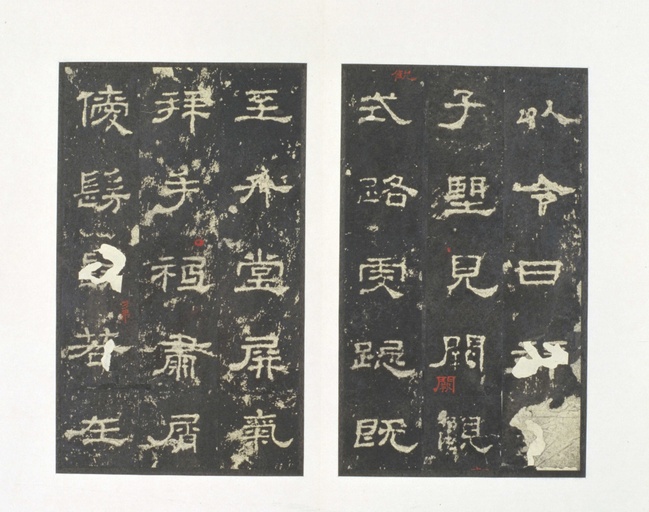 以令日
子望見闕觀
式路虔跽既
至升堂屏氣
拜手祗肅屑
僾髣若在
闕